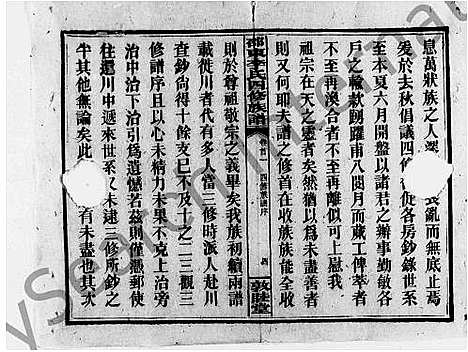 息萬狀族之人深 喪亂而無底止焉
爰於去秋倡議四修 使各房鈔錄世系
至本夏六月開盤以諸君之辦事勤敏各
戶之輸款踴躍甫八閱月而蕆工俾萃者
不至再渙合者不至再離似可上慰我
祖宗在天之靈者矣然猶以為未盡善者
則又何耶夫譜之修首在收族族能全收
李氏四修族譜
卷首一 四修譜序
敦睦堂
則於尊祖敬宗之義畢矣我族初續兩譜
載徙川者代有多人當三修時派人赴川
查鈔尚得十餘支已不及十之二三觀三
修譜序且以心未精力未果不克上治旁
治中治下治引為遺憾若茲則僅憑郵使
往還川中遞來世系 未逮三修所鈔之
半其他無論矣此 有未盡也其次